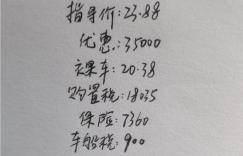 指导价:23.88
优惠:35000
裸车:20.38
购置税:18035
保险:7360
车船税:900